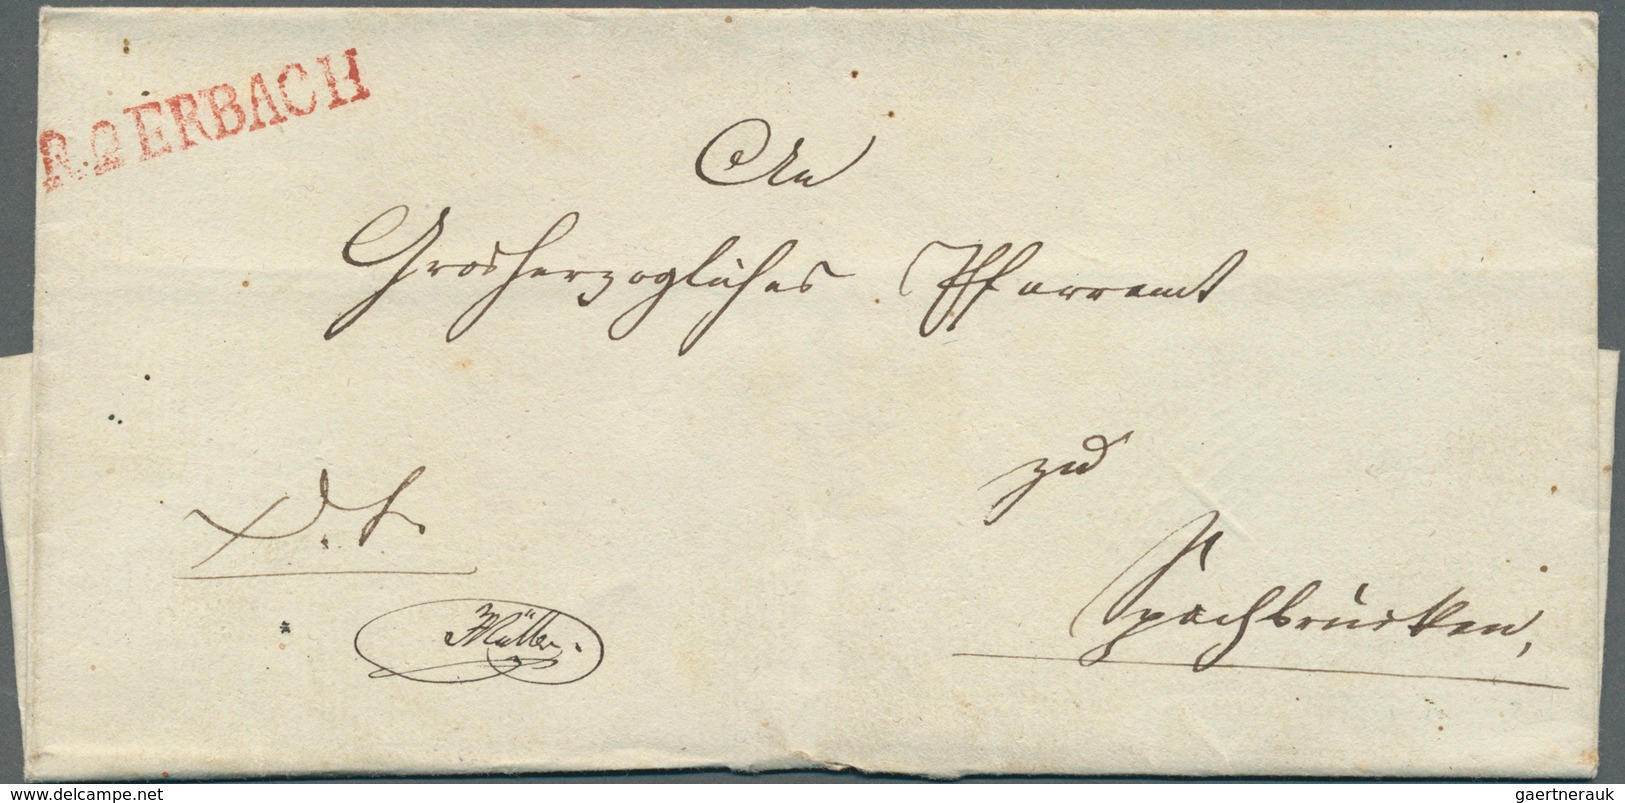 R.2 ERBACH
An
Grosherzogliches Pfarramt
zu
D. S.
Spachbrücken,
Müller.
www.delcampe.net
gaertnerauk